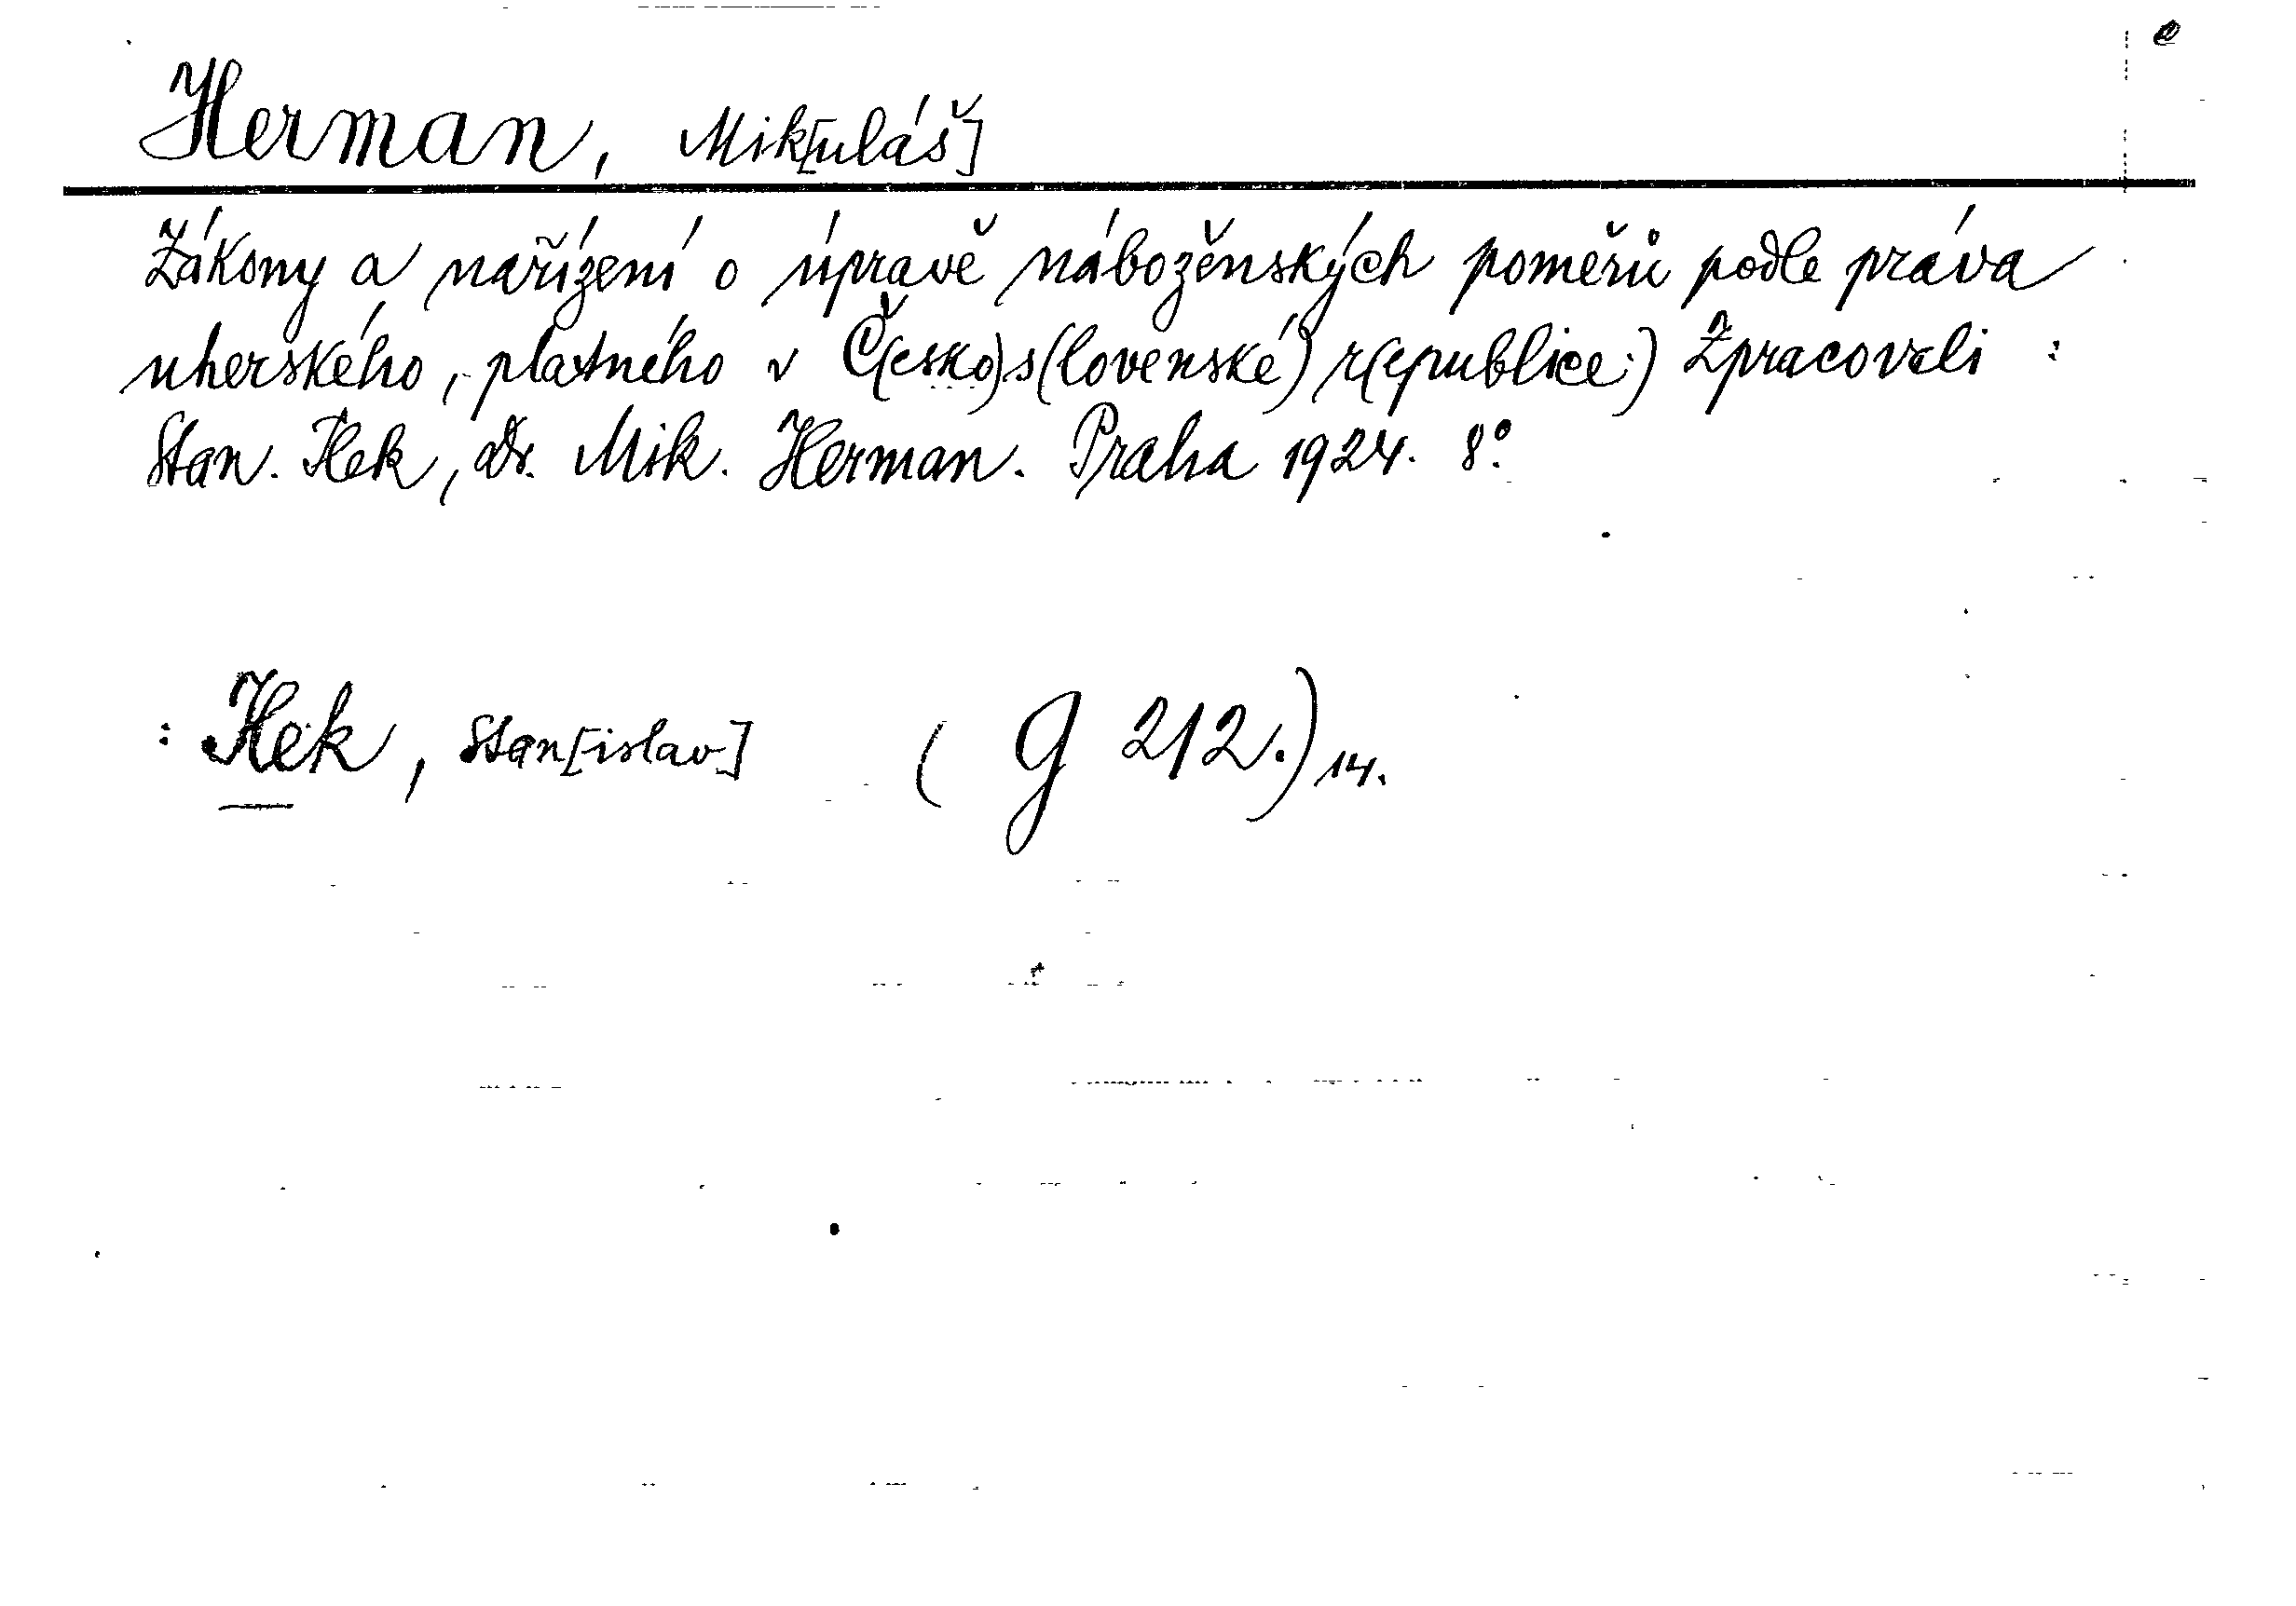 Herman, Mik[uláš]
Zákony a nařízení o úpravě náboženských poměrů podle práva
uherského, platného v Č(esko)s(lovenské) r(epublice.) Zpracovali :
Stan. Hek, dr. Mik. Herman. Praha 1924. 8°.
: Hek, Stan[islav] (G 212.) 14.